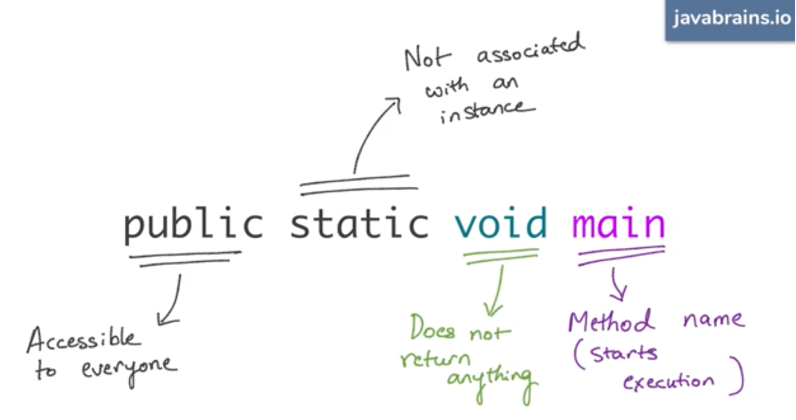 javabrains.io
Not associated
with an
instance
public static void main
Accessible
to everyone
Does not
return
anything
Method name
(starts
execution)